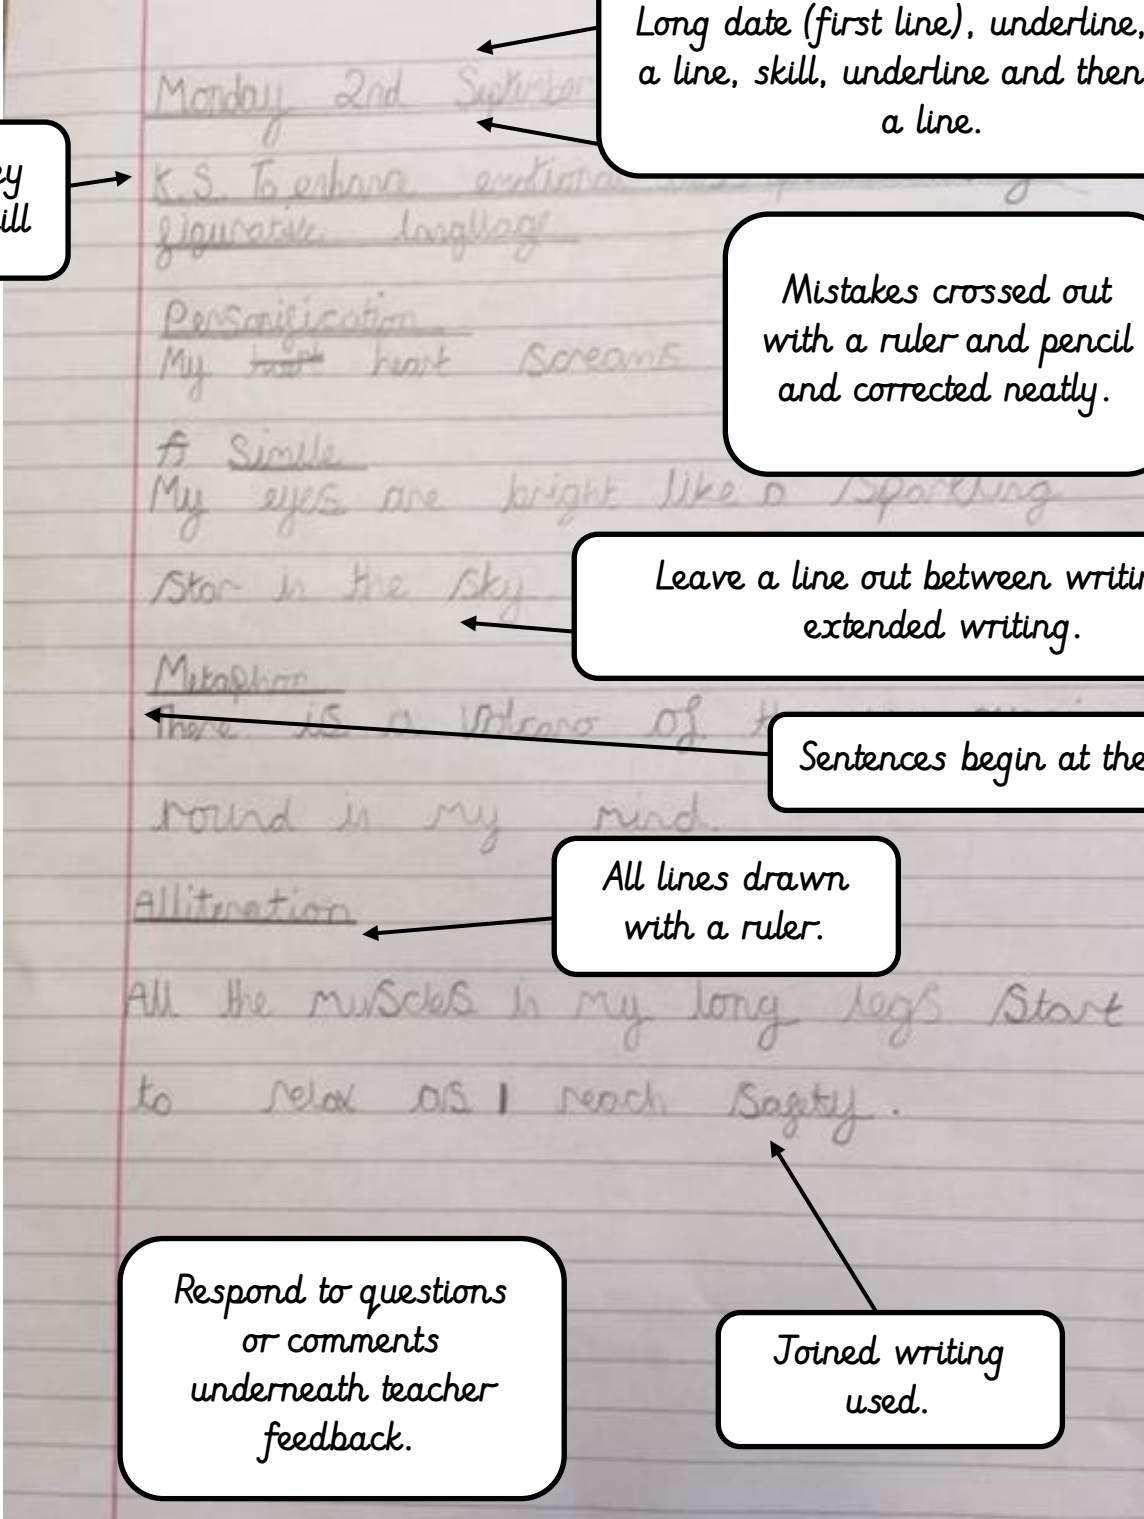 Long date (first line), underline,
a line, skill, underline and then
a line.
Monday 2nd September
ey
ill
K.S. To enhance emotional
figurative language
Mistakes crossed out
with a ruler and pencil
and corrected neatly.
Personification
My heart screams
Simile
My eyes are bright like a sparkling
Leave a line out between writin
extended writing.
star in the sky
Metaphor
There is a volcano of
Sentences begin at the
round in my mind.
All lines drawn
with a ruler.
Alliteration
All the muscles in my long legs start
to relax as I reach safety.
Respond to questions
or comments
underneath teacher
feedback.
Joined writing
used.